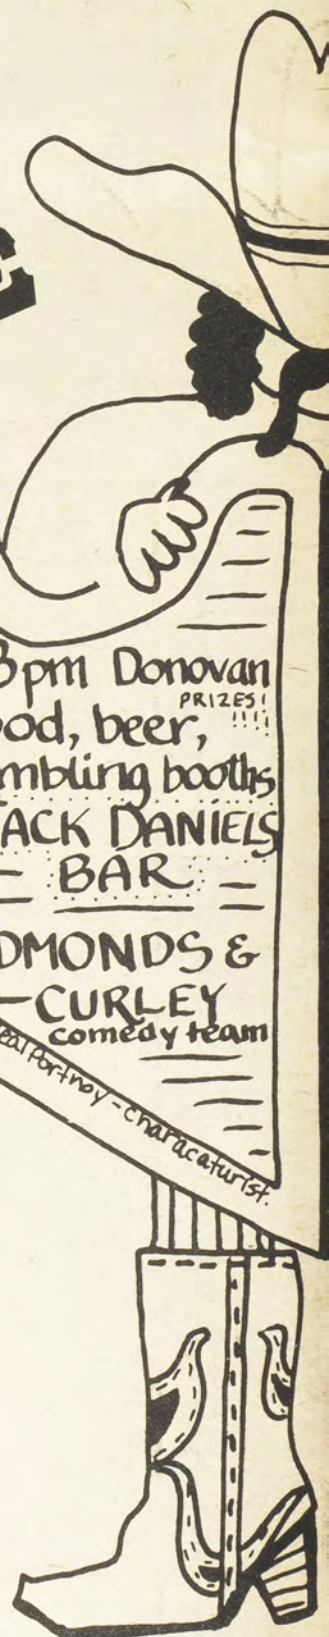 pm Donovan
PRIZES!
!!!!
ood, beer,
mbling booths
ACK DANIELS
BAR
DMONDS &
- CURLEY
comedy team
eal Portnoy - Characaturist.